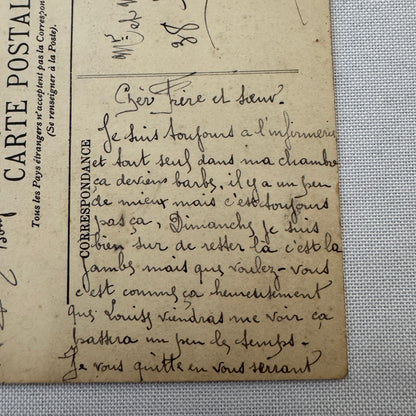 CARTE POSTALE
Tous les Pays étrangers n'acceptent pas la Correspondance
(Se renseigner à la Poste).
CORRESPONDANCE
Mr et
38
Cher Frère et sœur.
Je suis toujours a l'infirmerie
et tout seul dans ma chambre
ça deviens barbe, il y a un peu
de mieux mais c'est toujours
pas ça, Dimanche je suis
bien sur de rester là c'est la
jambe mais que voulez-vous
c'est comme ça heuresement
que Louise viendras me voir ça
passera un peu le temps-
Je vous quitte en vous serrant